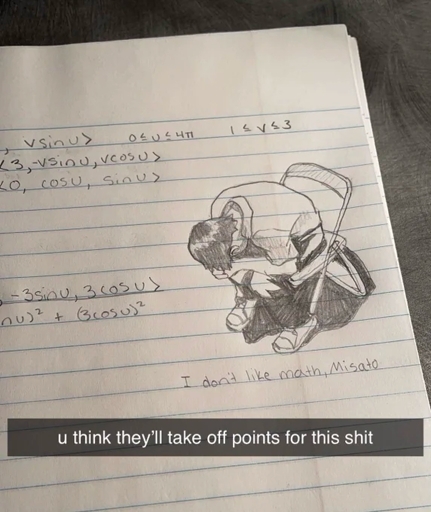 , vsinu> 0≤u≤4π 1≤v≤3
<3,-vsinu,vcosu>
<0, cosu, sinu>
, -3sinu, 3cosu>
nu)² + (3cosu)²
I don't like math, Misato
u think they'll take off points for this shit